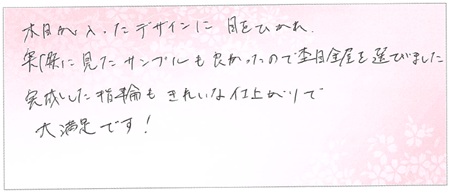 木目が入ったデザインに目をひかれ、
実際に見たサンプルも良かったので杢目金屋を選びました
完成した指輪もきれいな仕上がりで
大満足です！